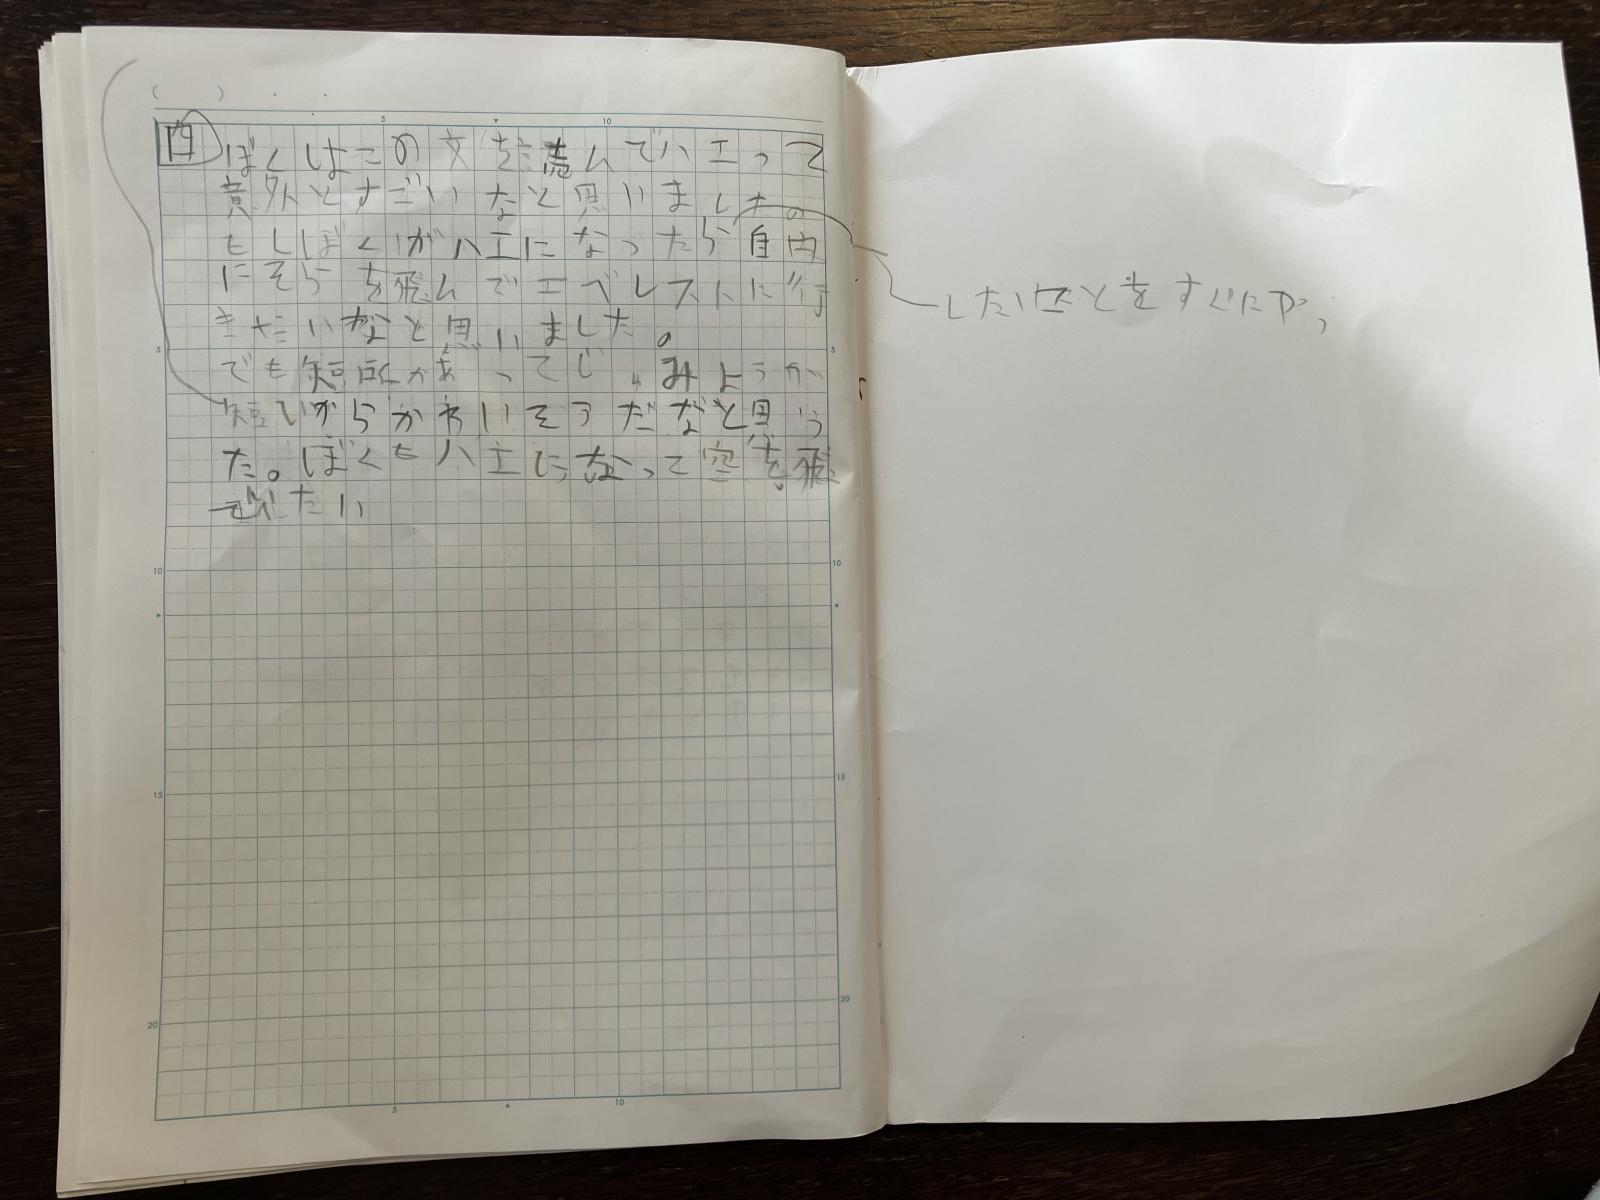 ぼくはこの文を読んでハエって
意外とすごいなと思いました。
もしぼくがハエになったら自由
にそらを飛んでエベレストに行
きたいなと思いました。
でも短所があってじゅみょうが
短いからかわいそうだなと思っ
た。ぼくもハエになって空を飛
びたい
したいことをすぐにや
( )
5
10
5
10
15
20
5
10
15
20
5
10